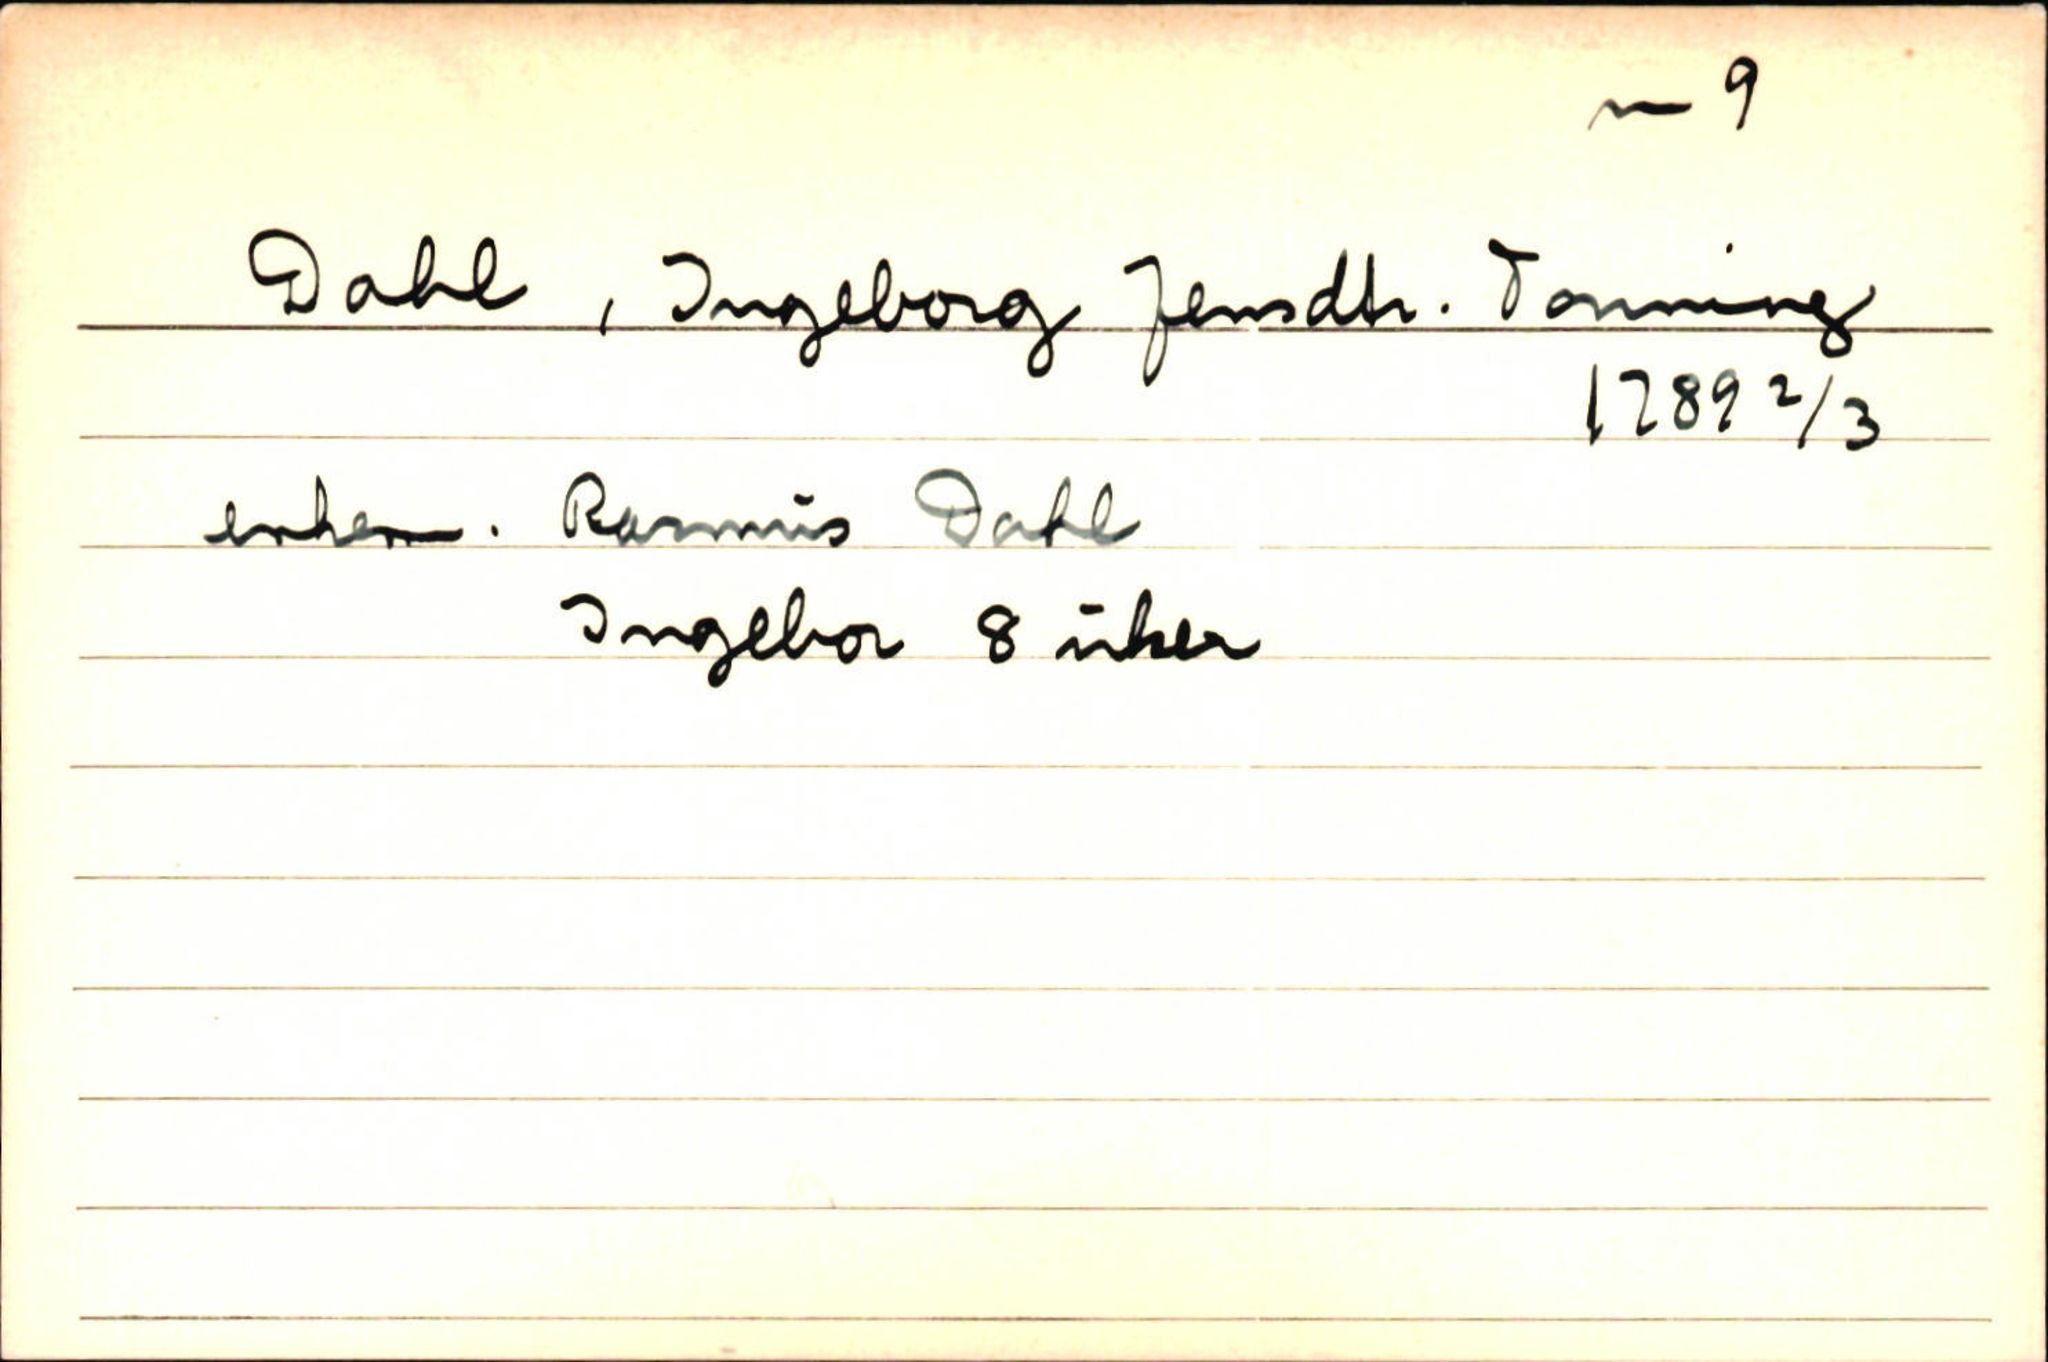 m 9
Dahl, Ingeborg Jensdtr. Tonning
1789 2/3
enkem. Rasmus Dahl
Ingebor 8 uker